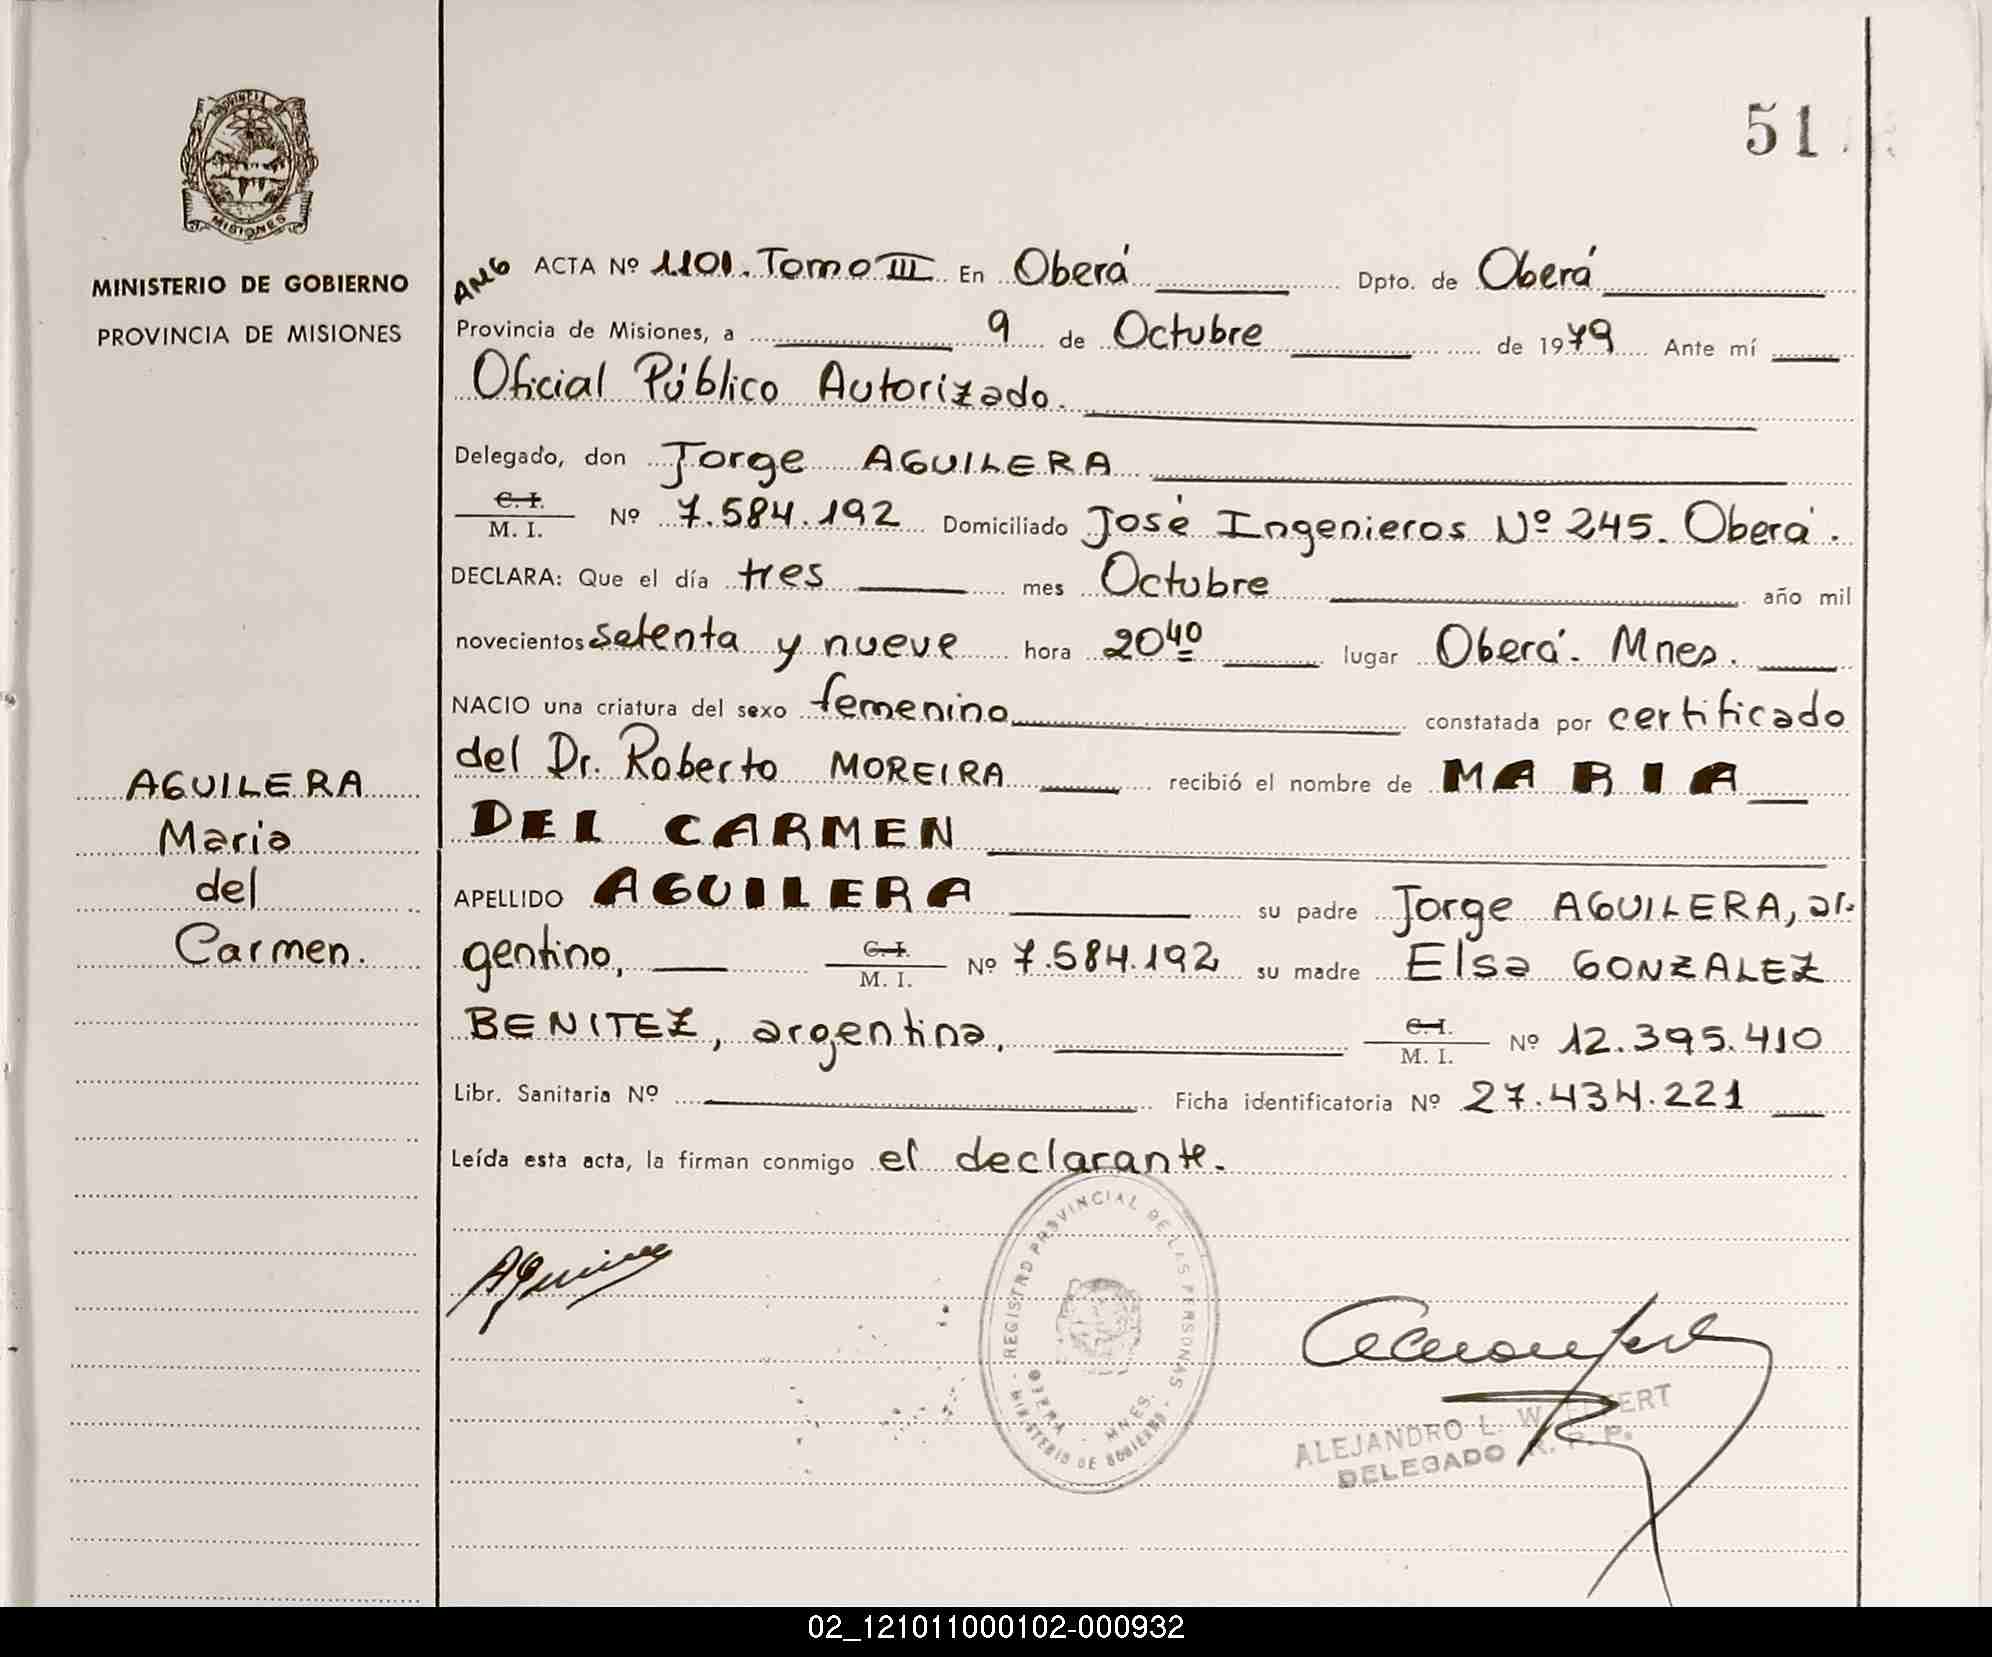 PROVINCIA DE
MISIONES
MINISTERIO DE GOBIERNO
PROVINCIA DE MISIONES
AGUILERA
Maria
del
Carmen.
51
ACTA Nº 1101. Tomo III En Oberá Dpto. de Oberá
Provincia de Misiones, a 9 de Octubre de 1979 Ante mí
Oficial Público Autorizado.
Delegado, don Jorge AGUILERA
C. I. / M. I. Nº 7.584.192 Domiciliado José Ingenieros Nº 245. Oberá.
DECLARA: Que el día tres mes Octubre año mil
novecientos setenta y nueve hora 20 40 lugar Oberá. Mnes.
NACIO una criatura del sexo femenino constatada por certificado
del Dr. Roberto MOREIRA recibió el nombre de MARIA
DEL CARMEN
APELLIDO AGUILERA su padre Jorge AGUILERA, ar-
gentino, C. I. / M. I. Nº 7.584.192 su madre Elsa GONZALEZ
BENITEZ, argentina, C. I. / M. I. Nº 12.395.410
Libr. Sanitaria Nº Ficha identificatoria Nº 27.434.221
Leída esta acta, la firman conmigo el declarante.
REGISTRO PROVINCIAL DE LAS PERSONAS
OBERA - MNES.
MINISTERIO DE GOBIERNO
ALEJANDRO L.
DELEGADO R. P. P.
02_121011000102-000932